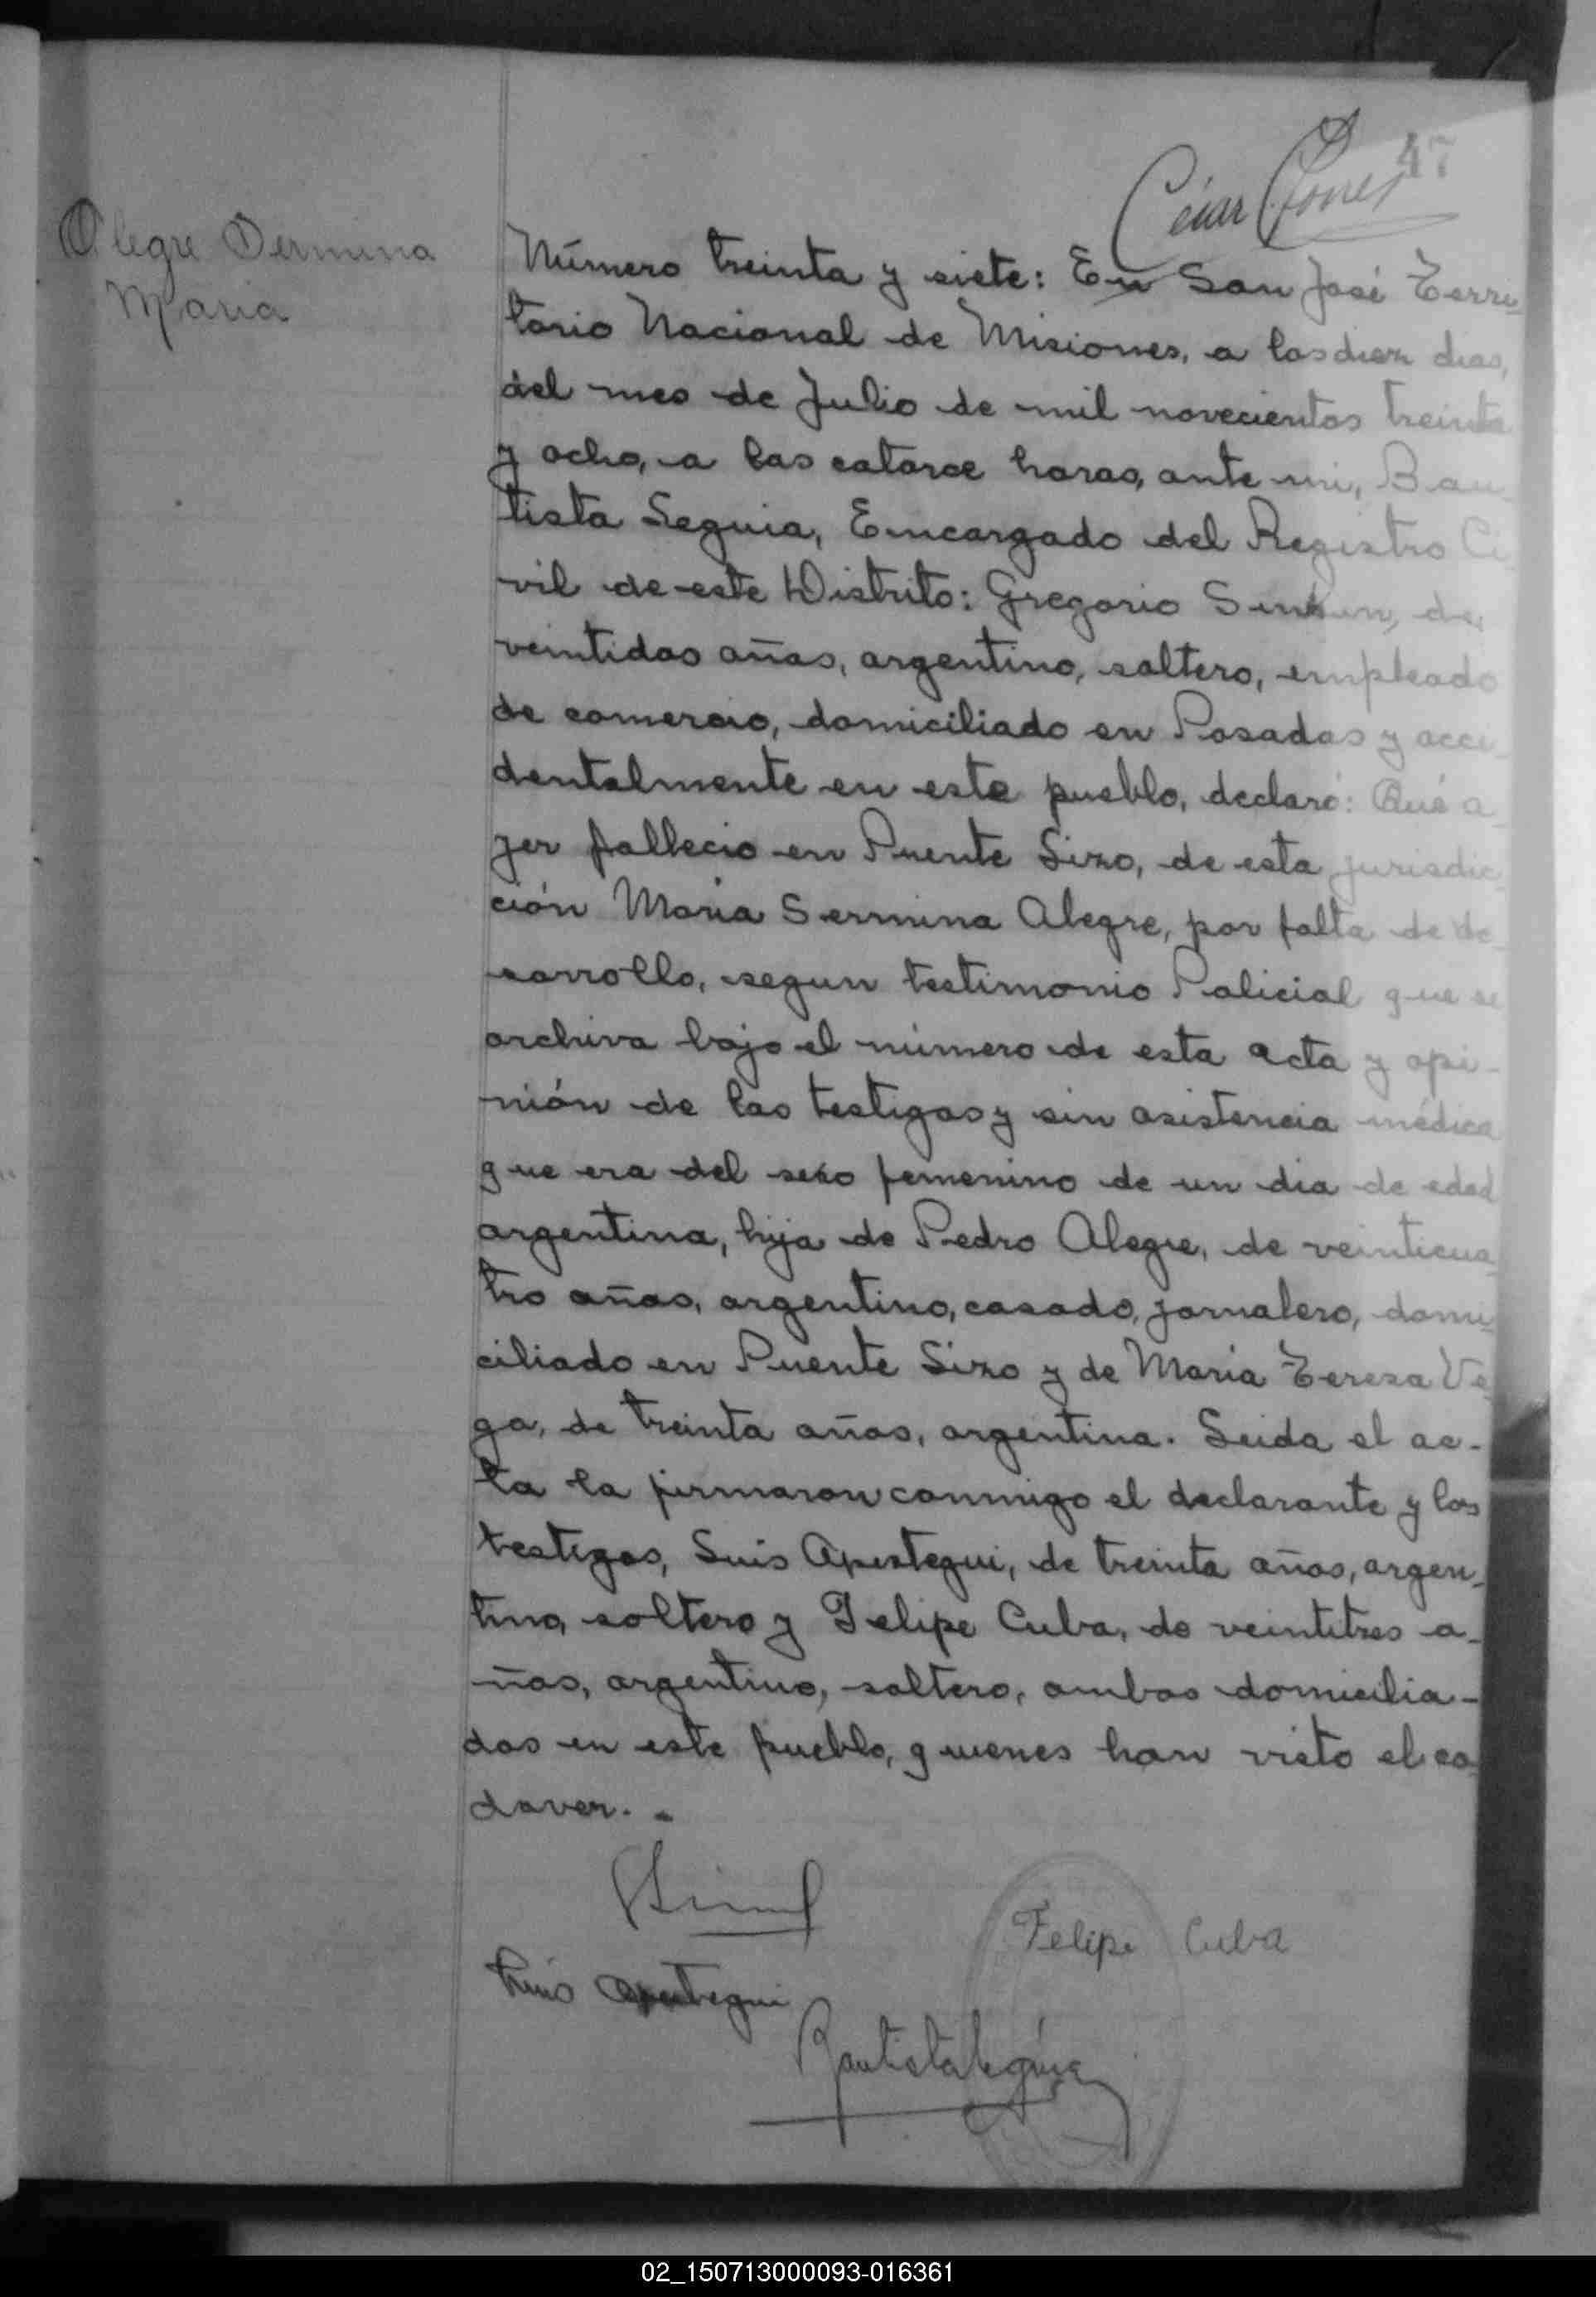 47
César
Alegre Dermina
Maria
Número treinta y siete: En San José Terri-
torio Nacional de Misiones, a los diez dias,
del mes de Julio de mil novecientos treinta
y ocho, a las catorce horas, ante mi, Bau-
tista Seguia, Encargado del Registro Ci-
vil de este Distrito: Gregorio de
veintidos años, argentino, soltero, empleado
de comercio, domiciliado en Posadas y acci-
dentalmente en este pueblo, declaró: Qué a-
yer fallecio en Puente Lizo, de esta jurisdic-
ción Maria Sermina Alegre, por falta de de-
sarrollo, segun testimonio Policial que se
archiva bajo el número de esta acta y opi-
nión de los testigos y sin asistencia médica
que era del sexo femenino de un dia de edad
argentina, hija de Pedro Alegre, de veinticua-
tro años, argentino, casado, jornalero, domi-
ciliado en Puente Lizo y de Maria Tereza Ve-
ga, de treinta años, argentina. Leida el ac-
ta la firmaron conmigo el declarante y los
testigos, Luis Apestegui, de treinta años, argen-
tino, soltero y Felipe Cuba, de veintitres a-
ños, argentino, soltero, ambos domicilia-
dos en este pueblo, quienes han visto el ca-
daver. -
Felipe Cuba
Luis Apestegui
Bautista Seguia
02_150713000093-016361